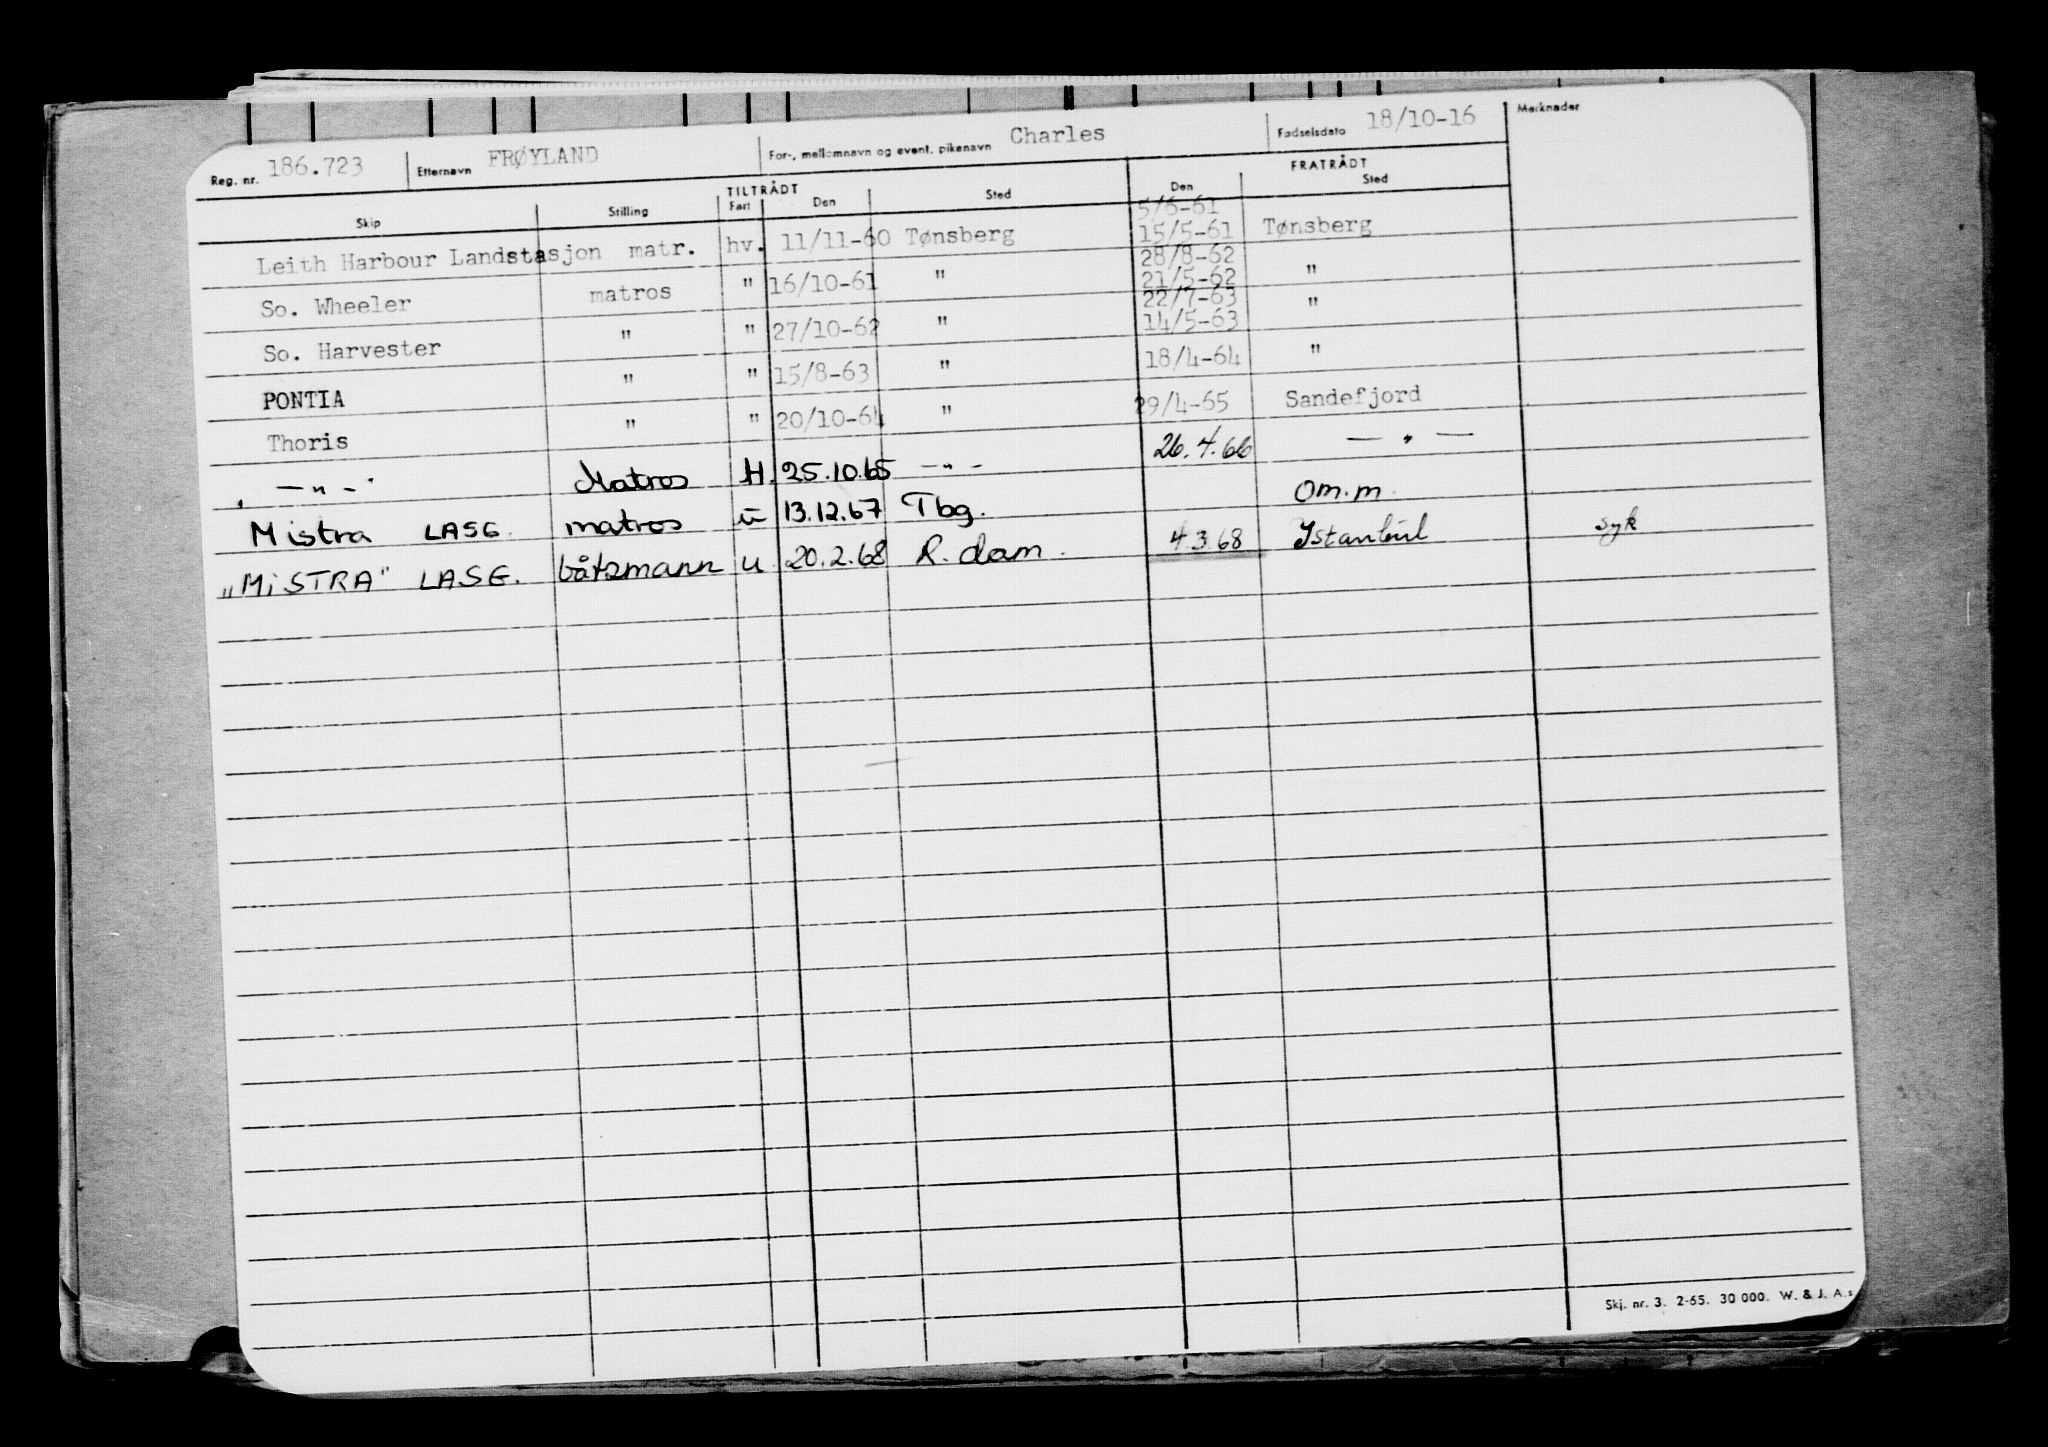 Reg. nr. 186.723 Etternavn FRØYLAND For-, mellomnavn og event. pikenavn Charles Fødselsdato 18/10-16 Merknader
TILTRÅDT FRATRÅDT
Skip Stilling Fart Den Sted Den Sted
5/6-61
Leith Harbour Landstasjon matr. hv. 11/11-60 Tønsberg 15/5-61 Tønsberg
28/8-62
So. Wheeler matros " 16/10-61 " 21/5-62 "
22/7-63
So. Harvester " " 27/10-62 " 14/5-63 "
PONTIA " " 15/8-63 " 18/4-64 "
Thoris " " 20/10-64 " 29/4-65 Sandefjord
— " — Matros H. 25.10.65 — " — 26.4.66 — " —
Mistra LASG. matros u 13.12.67 Tbg. Om.m.
"MiSTRA" LASG. båtsmann u 20.2.68 R.dam. 4.3.68 Istanbul syk
Skj. nr. 3. 2-65. 30 000. W. & J. A.s